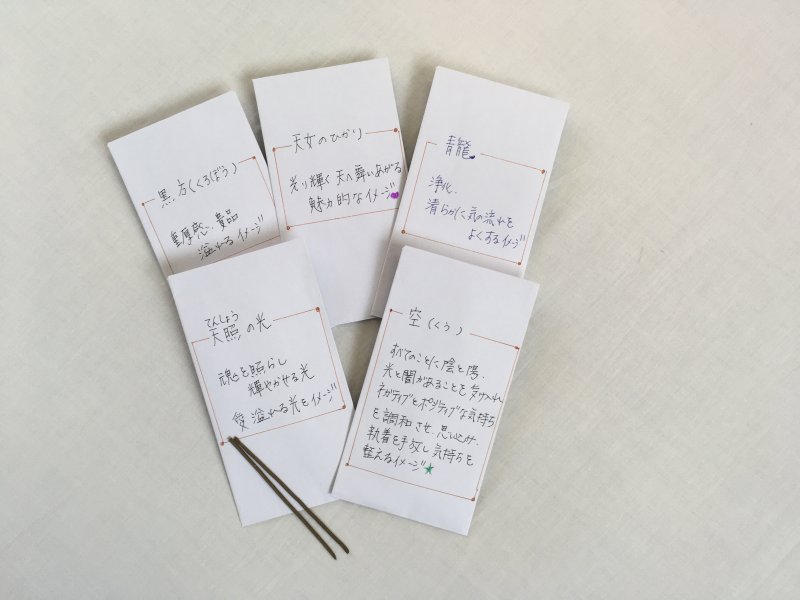 黒方(くろぼう)
重厚感、貴品
溢れるイメージ
天女のひかり
光り輝く天へ舞いあがる
魅力的なイメージ
青龍
浄化、
清らかに気の流れを
よくするイメージ
てんしょう
天照の光
魂を照らし
輝やかせる光
愛溢れる光をイメージ
空(くう)
すべてのことに陰と陽、
光と闇があることを受け入れ
ネガティブとポジティブな気持ち
を調和させ 思い込み、
執着を手放し 気持ちを
整えるイメージ